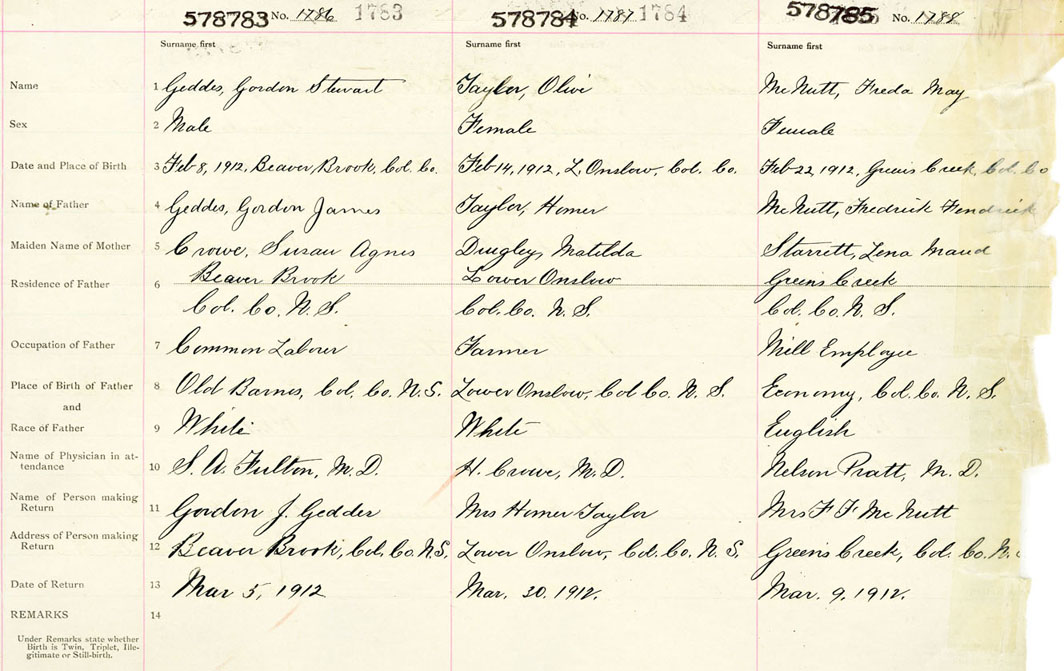 578783 No. 1786 1783 578784 No. 1787 1784 578785 No. 1788
Surname first Surname first Surname first
Name 1 Geddes, Gordon Stewart Taylor, Olive McNutt, Freda May
Sex 2 Male Female Female
Date and Place of Birth 3 Feb 8, 1912, Beaver Brook, Col. Co. Feb 14, 1912, L. Onslow, Col. Co. Feb 22, 1912, Greens Creek, Col. Co
Name of Father 4 Geddes, Gordon James Taylor, Homer McNutt, Fredrick Fendrick
Maiden Name of Mother 5 Crowe, Susan Agnes Dingley, Matilda Starrett, Lena Maud
Residence of Father 6 Beaver Brook Lower Onslow Greens Creek
Col. Co. N.S. Col. Co. N.S. Col. Co. N.S.
Occupation of Father 7 Common Laborer Farmer Mill Employee
Place of Birth of Father 8 Old Barns, Col. Co. N.S. Lower Onslow, Col Co. N.S. Economy, Col. Co. N.S.
and
Race of Father 9 White White English
Name of Physician in at-
tendance 10 S. A. Fulton, M.D. H. Crowe, M.D. Nelson Pratt, M.D.
Name of Person making
Return 11 Gordon J. Geddes Mrs Homer Taylor Mrs F F McNutt
Address of Person making
Return 12 Beaver Brook, Col. Co. N.S. Lower Onslow, Col. Co. N.S. Greens Creek, Col. Co. N.
Date of Return 13 Mar 5, 1912 Mar. 30. 1912. Mar. 9. 1912.
REMARKS 14
Under Remarks state whether
Birth is Twin, Triplet, Ille-
gitimate or Still-birth.